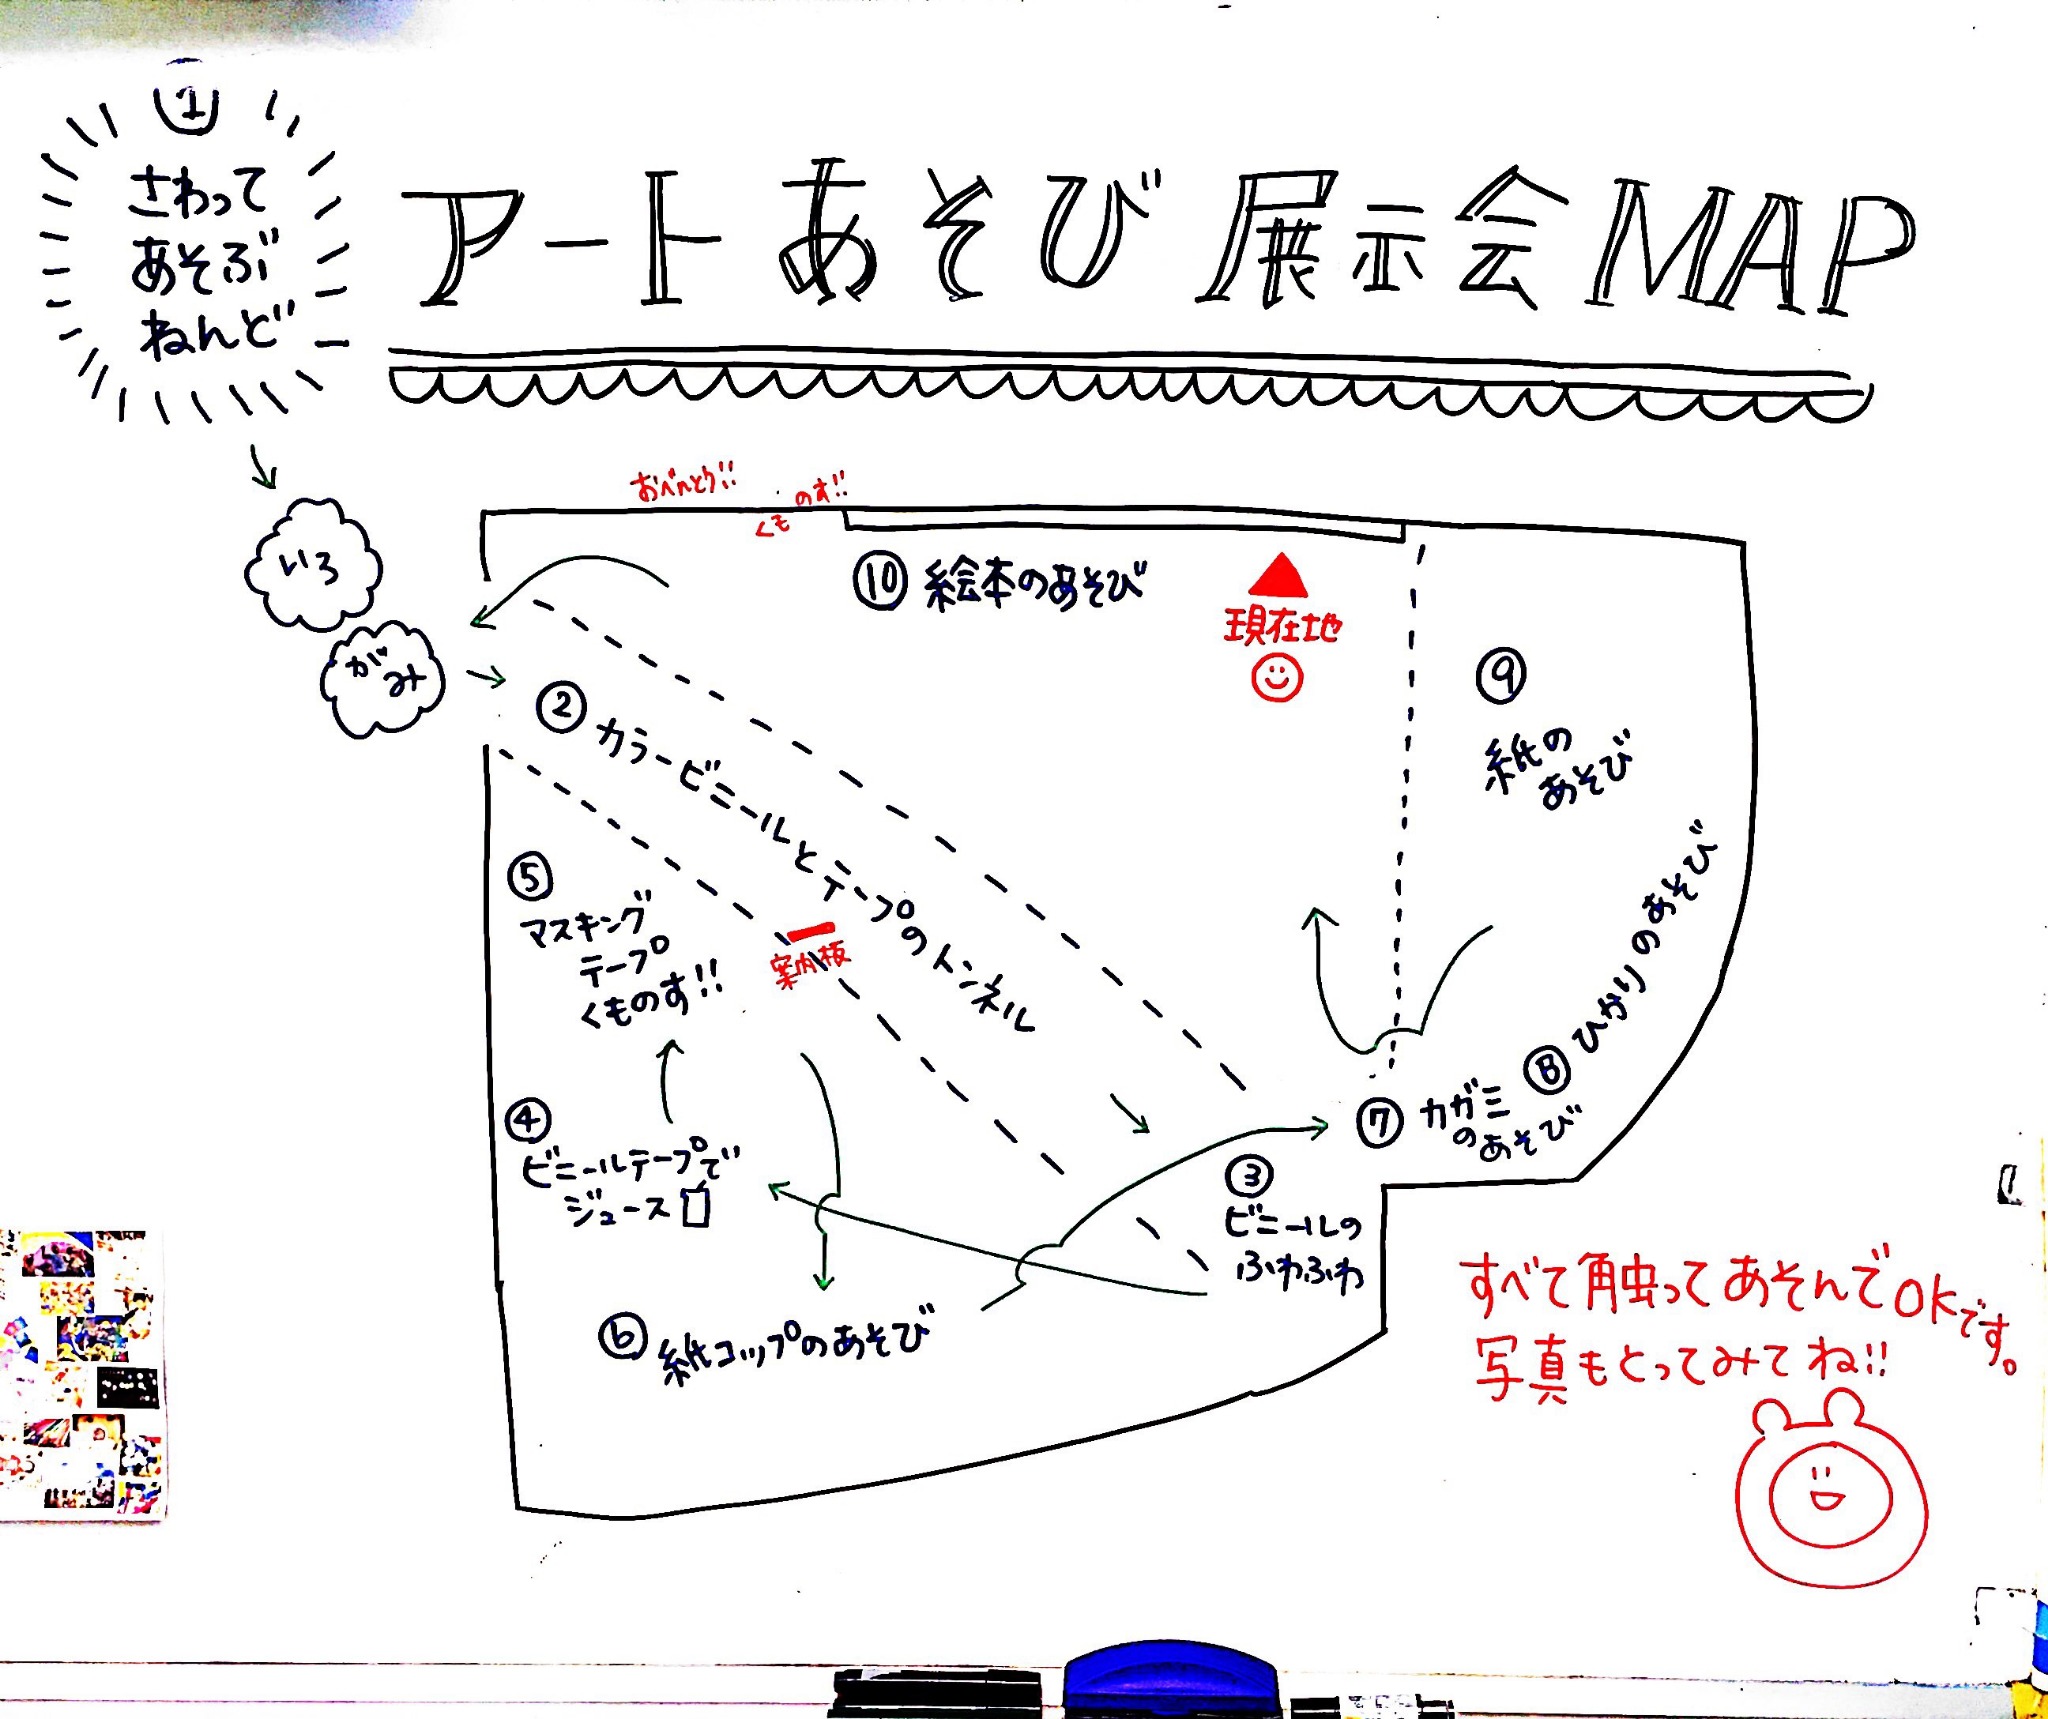 ①
さわって
あそぶ
ねんど
アートあそび展示会MAP
いろ
がみ
おべんとう!!
くものす!!
⑩ 絵本のあそび
現在地
② カラービニールとテープのトンネル
⑨
紙の
あそび
⑤
マスキング
テープ
くものす!!
案内板
⑧ ひかりのあそび
④
ビニールテープで
ジュース
⑦ カガミ
のあそび
③
ビニールの
ふわふわ
⑥ 紙コップのあそび
すべて触ってあそんでOKです。
写真もとってみてね!!